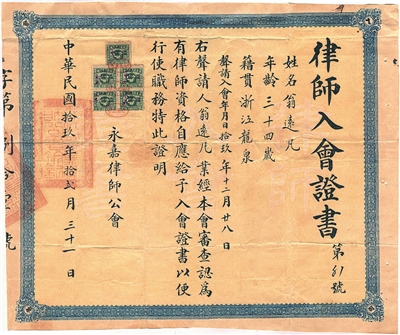 律師入會證書
第81號
姓名翁遠凡
年齡三十四歲
籍貫浙江龍泉
聲請入會年月日拾玖年十二月廿八日
右聲請人翁遠凡業經本會審查認為
有律師資格自應給予入會證書以便
行使職務特此證明
永嘉律師公會
中華民國拾玖年拾貳月三十一日
字第捌拾壹號